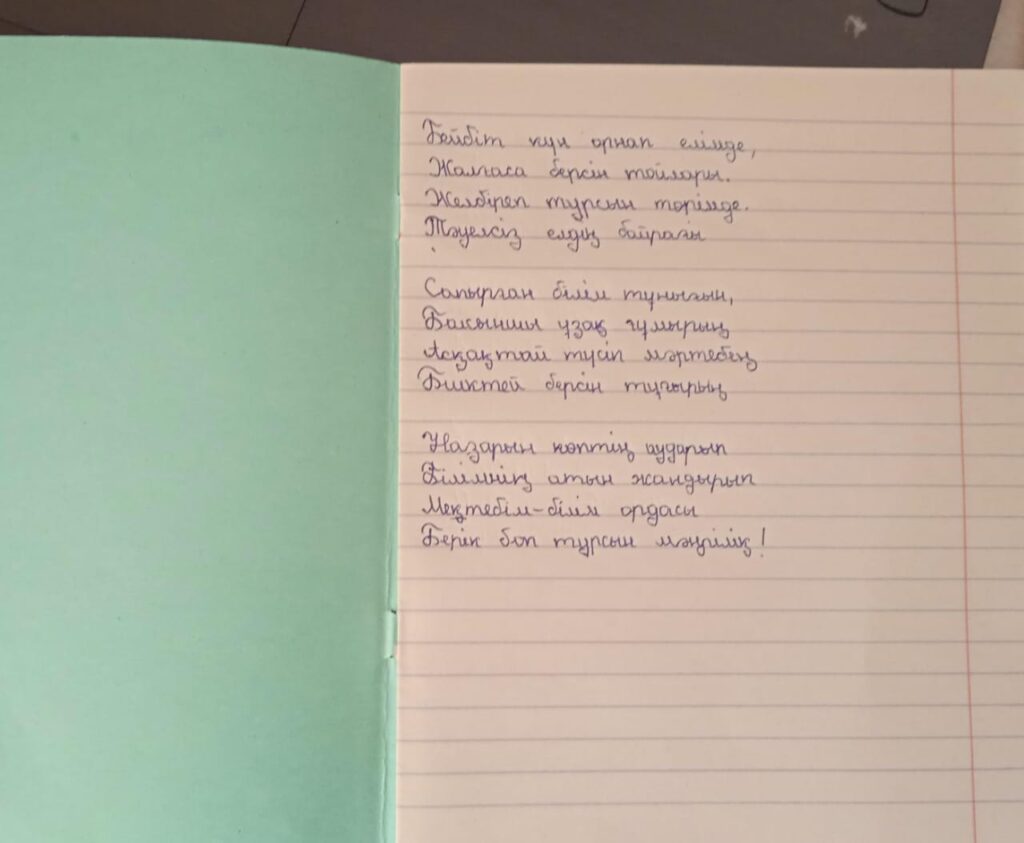 Бейбіт күн орнап елімде,
Жалғаса берсін тойлары.
Желбіреп тұрсын төрімде.
Тәуелсіз елдің байрағы

Сапырған білім тұнығын,
Бақыншы ұзақ ғұмырың
Асқақтай түсіп мәртебең
Биіктей берсін тұғырың

Назарын көптің аударып
Білімнің атын жандырып
Мектебім-білім ордасы
Берік боп тұрсын мәңгілік!